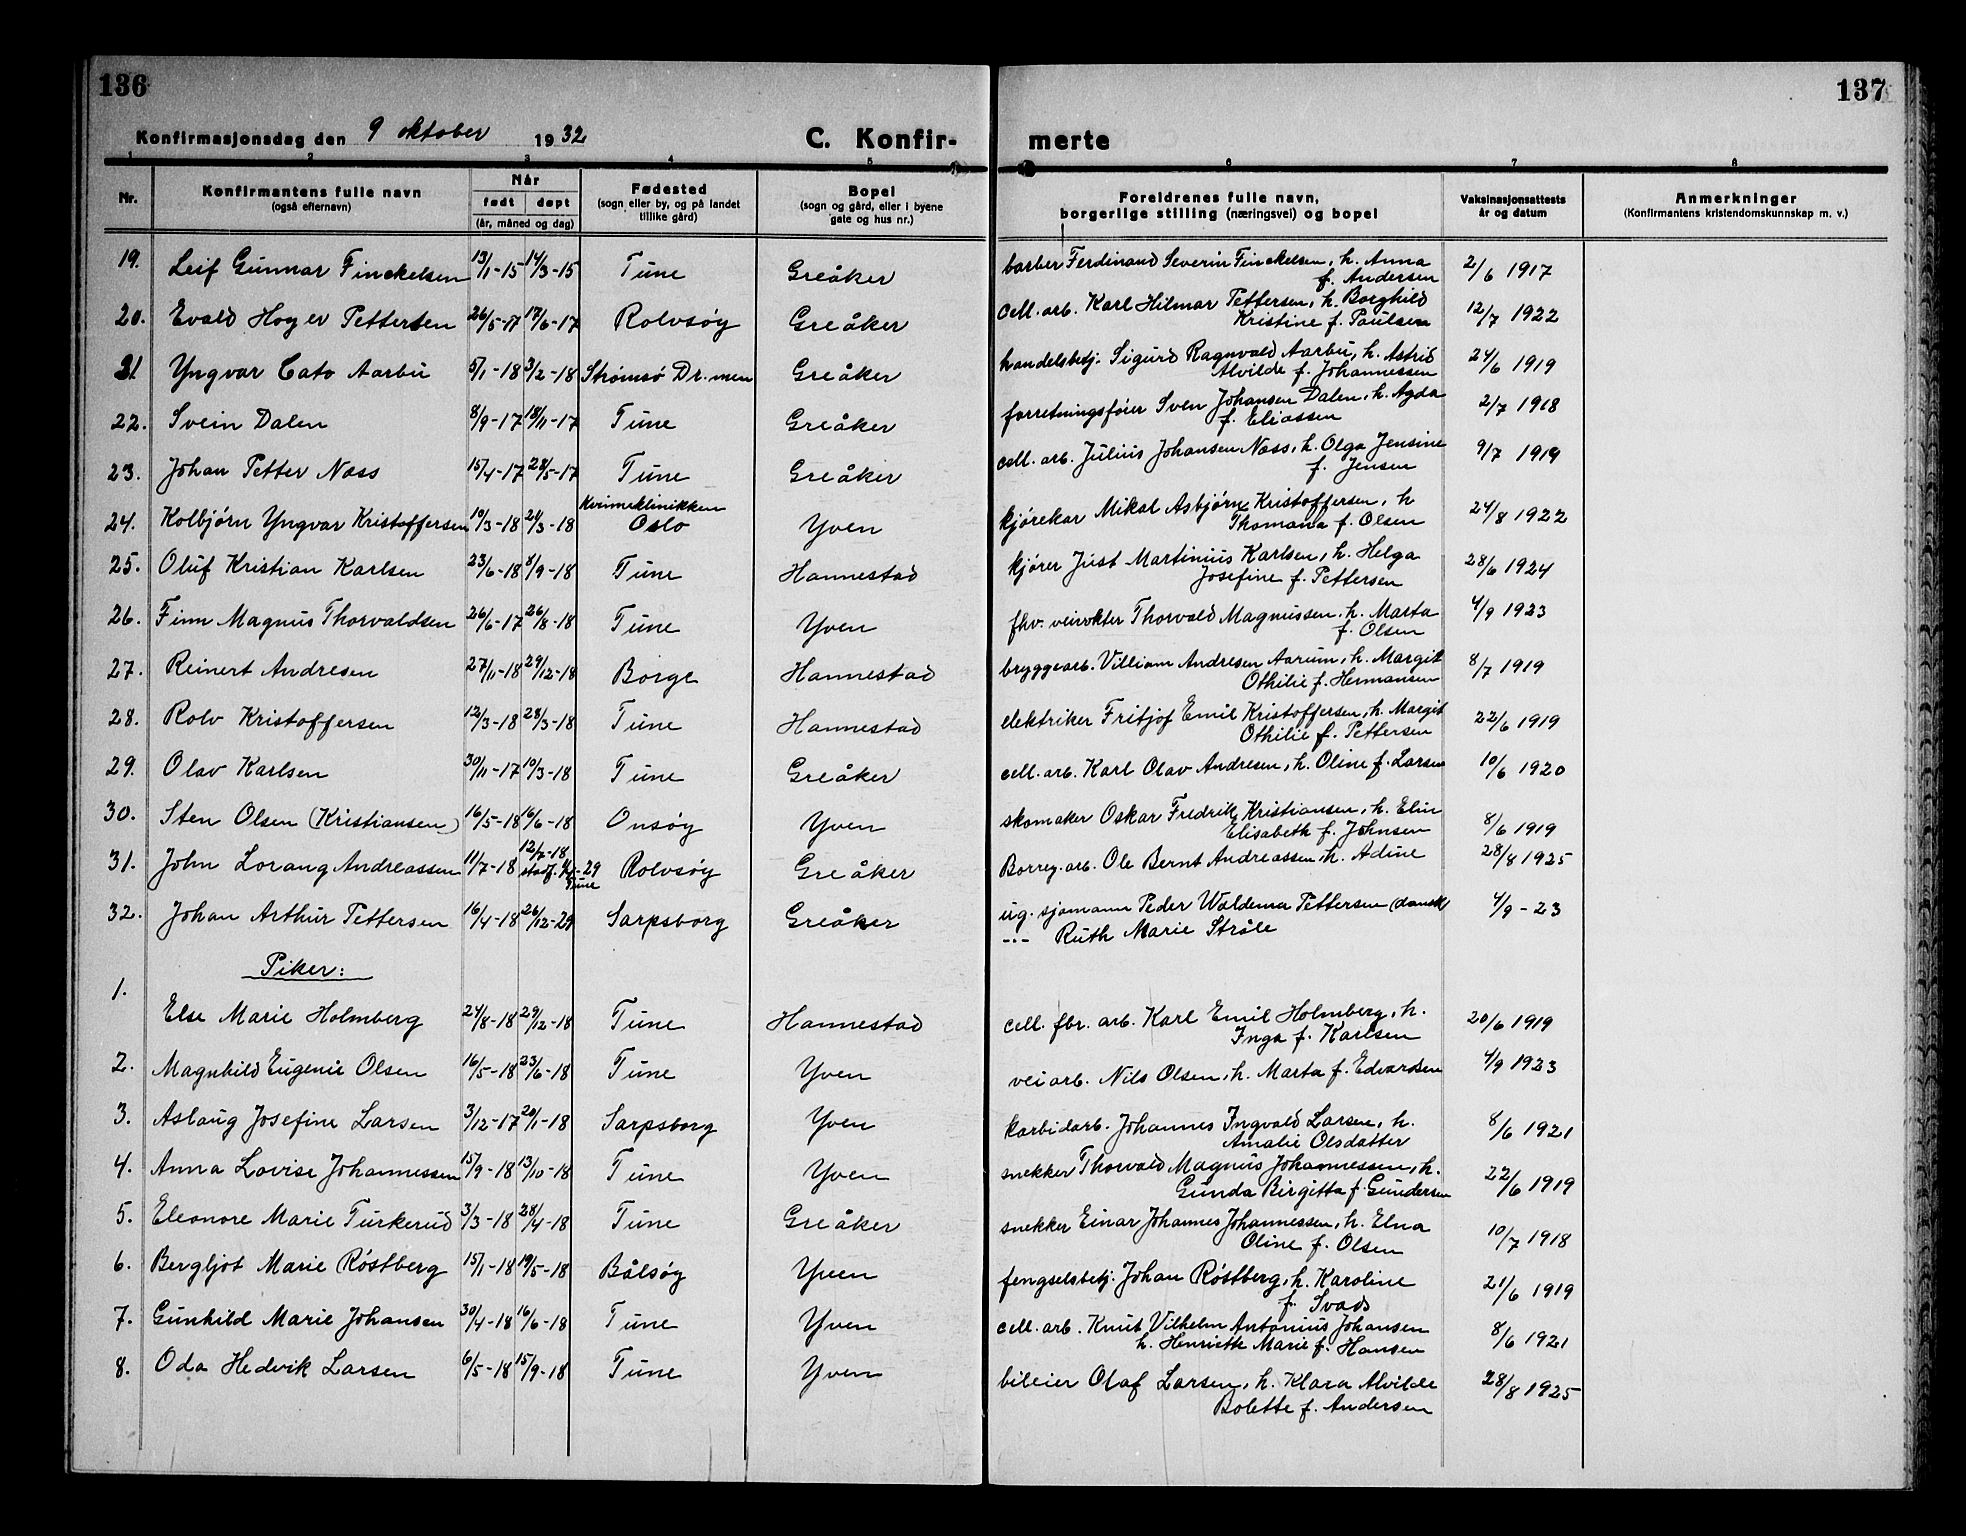 136
137
Konfirmasjonsdag den 9 oktober 1932
C. Konfir-
merte
1 2 3 4 5 6 7 8
Nr.
Konfirmantens fulle navn
(også efternavn)
Når
født døpt
(år, måned og dag)
Fødested
(sogn eller by, og på landet
tillike gård)
Bopel
(sogn og gård, eller i byene
gate og hus nr.)
Foreldrenes fulle navn,
borgerlige stilling (næringsvei) og bopel
Vaksinasjonsattests
år og datum
Anmerkninger
(Konfirmantens kristendomskunnskap m. v.)
19. Leif Gunnar Finckelsen 13/1-15 14/3-15 Tune Greåker barber Ferdinand Severin Finckelsen, h. Anna 2/6 1917
f. Andersen
20. Evald Hoyer Pettersen 26/5-17 17/6-17 Rolvsøy Greåker cell. arb. Karl Hilmar Pettersen, h. Borghild 12/7 1922
Kristine f. Paulsen
21 Yngvar Cato Aarbu 5/1-18 3/2-18 Strømsø Dr.men Greåker handelsbetj. Sigurd Ragnvald Aarbu, h. Astrid 24/6 1919
Alvilde f. Johannessen
22. Svein Dalen 8/9-17 18/11-17 Tune Greåker forretningsfører Sven Johansen Dalen, h. Agda 2/7 1918
f. Eliassen
23. Johan Petter Næss 15/4-17 28/5-17 Tune Greåker cell. arb. Julius Johansen Næss, h. Olga Jensine 9/7 1919
f. Jensen
24. Kolbjørn Yngvar Kristoffersen 10/3-18 24/3-18 Kvinneklinikken
Oslo Yven kjørekar Mikal Asbjørn Kristoffersen, h 24/8 1922
Thomana f. Olsen
25. Oluf Kristian Karlsen 23/6-18 8/9-18 Tune Hannestad kjører Just Martinius Karlsen, h. Helga 28/6 1924
Josefine f. Pettersen
26. Finn Magnus Thorvaldsen 26/6-17 26/8-18 Tune Yven fhv. veivokter Thorvald Magnussen, h. Marta 4/9 1923
f. Olsen
27. Reinert Andresen 27/11-18 29/12-18 Borge Hannestad bryggearb. Villiam Andresen Aarum, h. Margit 8/7 1919
Othilie f. Hermansen
28. Rolv Kristoffersen 12/3-18 28/3-18 Tune Hannestad elektriker Fritjof Emil Kristoffersen, h. Margit 22/6 1919
Othilie f. Pettersen
29. Olav Karlsen 30/11-17 10/3-18 Tune Greåker cell. arb. Karl Olav Andresen, h. Oline f. Larsen 10/6 1920
30. Sten Olsen (Kristiansen) 16/5-18 16/6-18 Onsøy Yven skomaker Oskar Fredrik Kristiansen, h. Elin 8/6 1919
Elisabeth f. Johnsen
31. John Lorang Andreassen 11/7-18 12/7-18 Rolvsøy Greåker Borreg. arb. Ole Bernt Andreassen, h. Adine 28/8 1925
stadf. -29
Tune
32. Johan Arthur Pettersen 16/4-18 26/12-29 Sarpsborg Greåker ug. sjømann Peder Waldema Pettersen (dansk) 4/9-23
--- Ruth Marie Stråle
Piker:
1. Else Marie Holmberg 24/8-18 29/12-18 Tune Hannestad cell. fbr. arb. Karl Emil Holmberg, h. 20/6 1919
Inga f. Karlsen
2. Magnhild Eugenie Olsen 16/5-18 23/6-18 Tune Yven veiarb. Nils Olsen, h. Marta f. Edvardsen 4/9 1923
3. Aslaug Josefine Larsen 3/12-17 20/1-18 Sarpsborg Yven karbidarb. Johannes Ingvald Larsen, h. 8/6 1921
Amalie Olsdatter
4. Anna Lovise Johannessen 15/9-18 13/10-18 Tune Yven snekker Thorvald Magnus Johannessen, h. 22/6 1919
Gunda Birgitta f. Gundersen
5. Eleonore Marie Turkerud 3/3-18 28/4-18 Tune Greåker snekker Einar Johannes Johannessen, h. Elna 10/7 1918
Oline f. Olsen
6. Bergljot Marie Røstberg 15/1-18 19/5-18 Båtsøy Yven fengselsbetj. Johan Røstberg, h. Karoline 21/6 1919
f. Svads
7. Gunhild Marie Johansen 30/4-18 16/6-18 Tune Yven cell. arb. Knut Vilhelm Antonius Johansen 8/6 1921
h. Henriette Marie f. Hansen
8. Oda Hedvik Larsen 6/5-18 15/9-18 Tune Yven bileier Olaf Larsen, h. Klara Alvilde 28/8 1925
Bolette f. Andersen